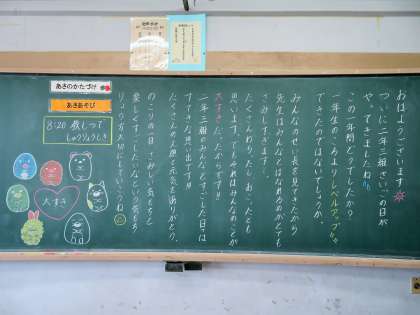 あさのかたづけ
あさあそび
8:20 教しつで
しゅうりょうしき
大すき
おはようございます
ついに二年三組さいごの日が
やってきましたね
この一年間どうでしたか?
一年生のころよりレベルアップ
できたのではないでしょうか。
みんなのせい長を見てきたから
先生はみんなとはなれるのがとても
さみしすぎます!
たくさんわらったし、おこったとも
思います。でもそれはみんなのことが
大すきだったからです!!
二年三組のみんなとすごした日々は
すてきな思い出です!!
たくさんの人き元気をありがとう。
のこりの一日、さみしい気もちと
楽しくすごしたいなという気もち
りょう方大切にしていこうね